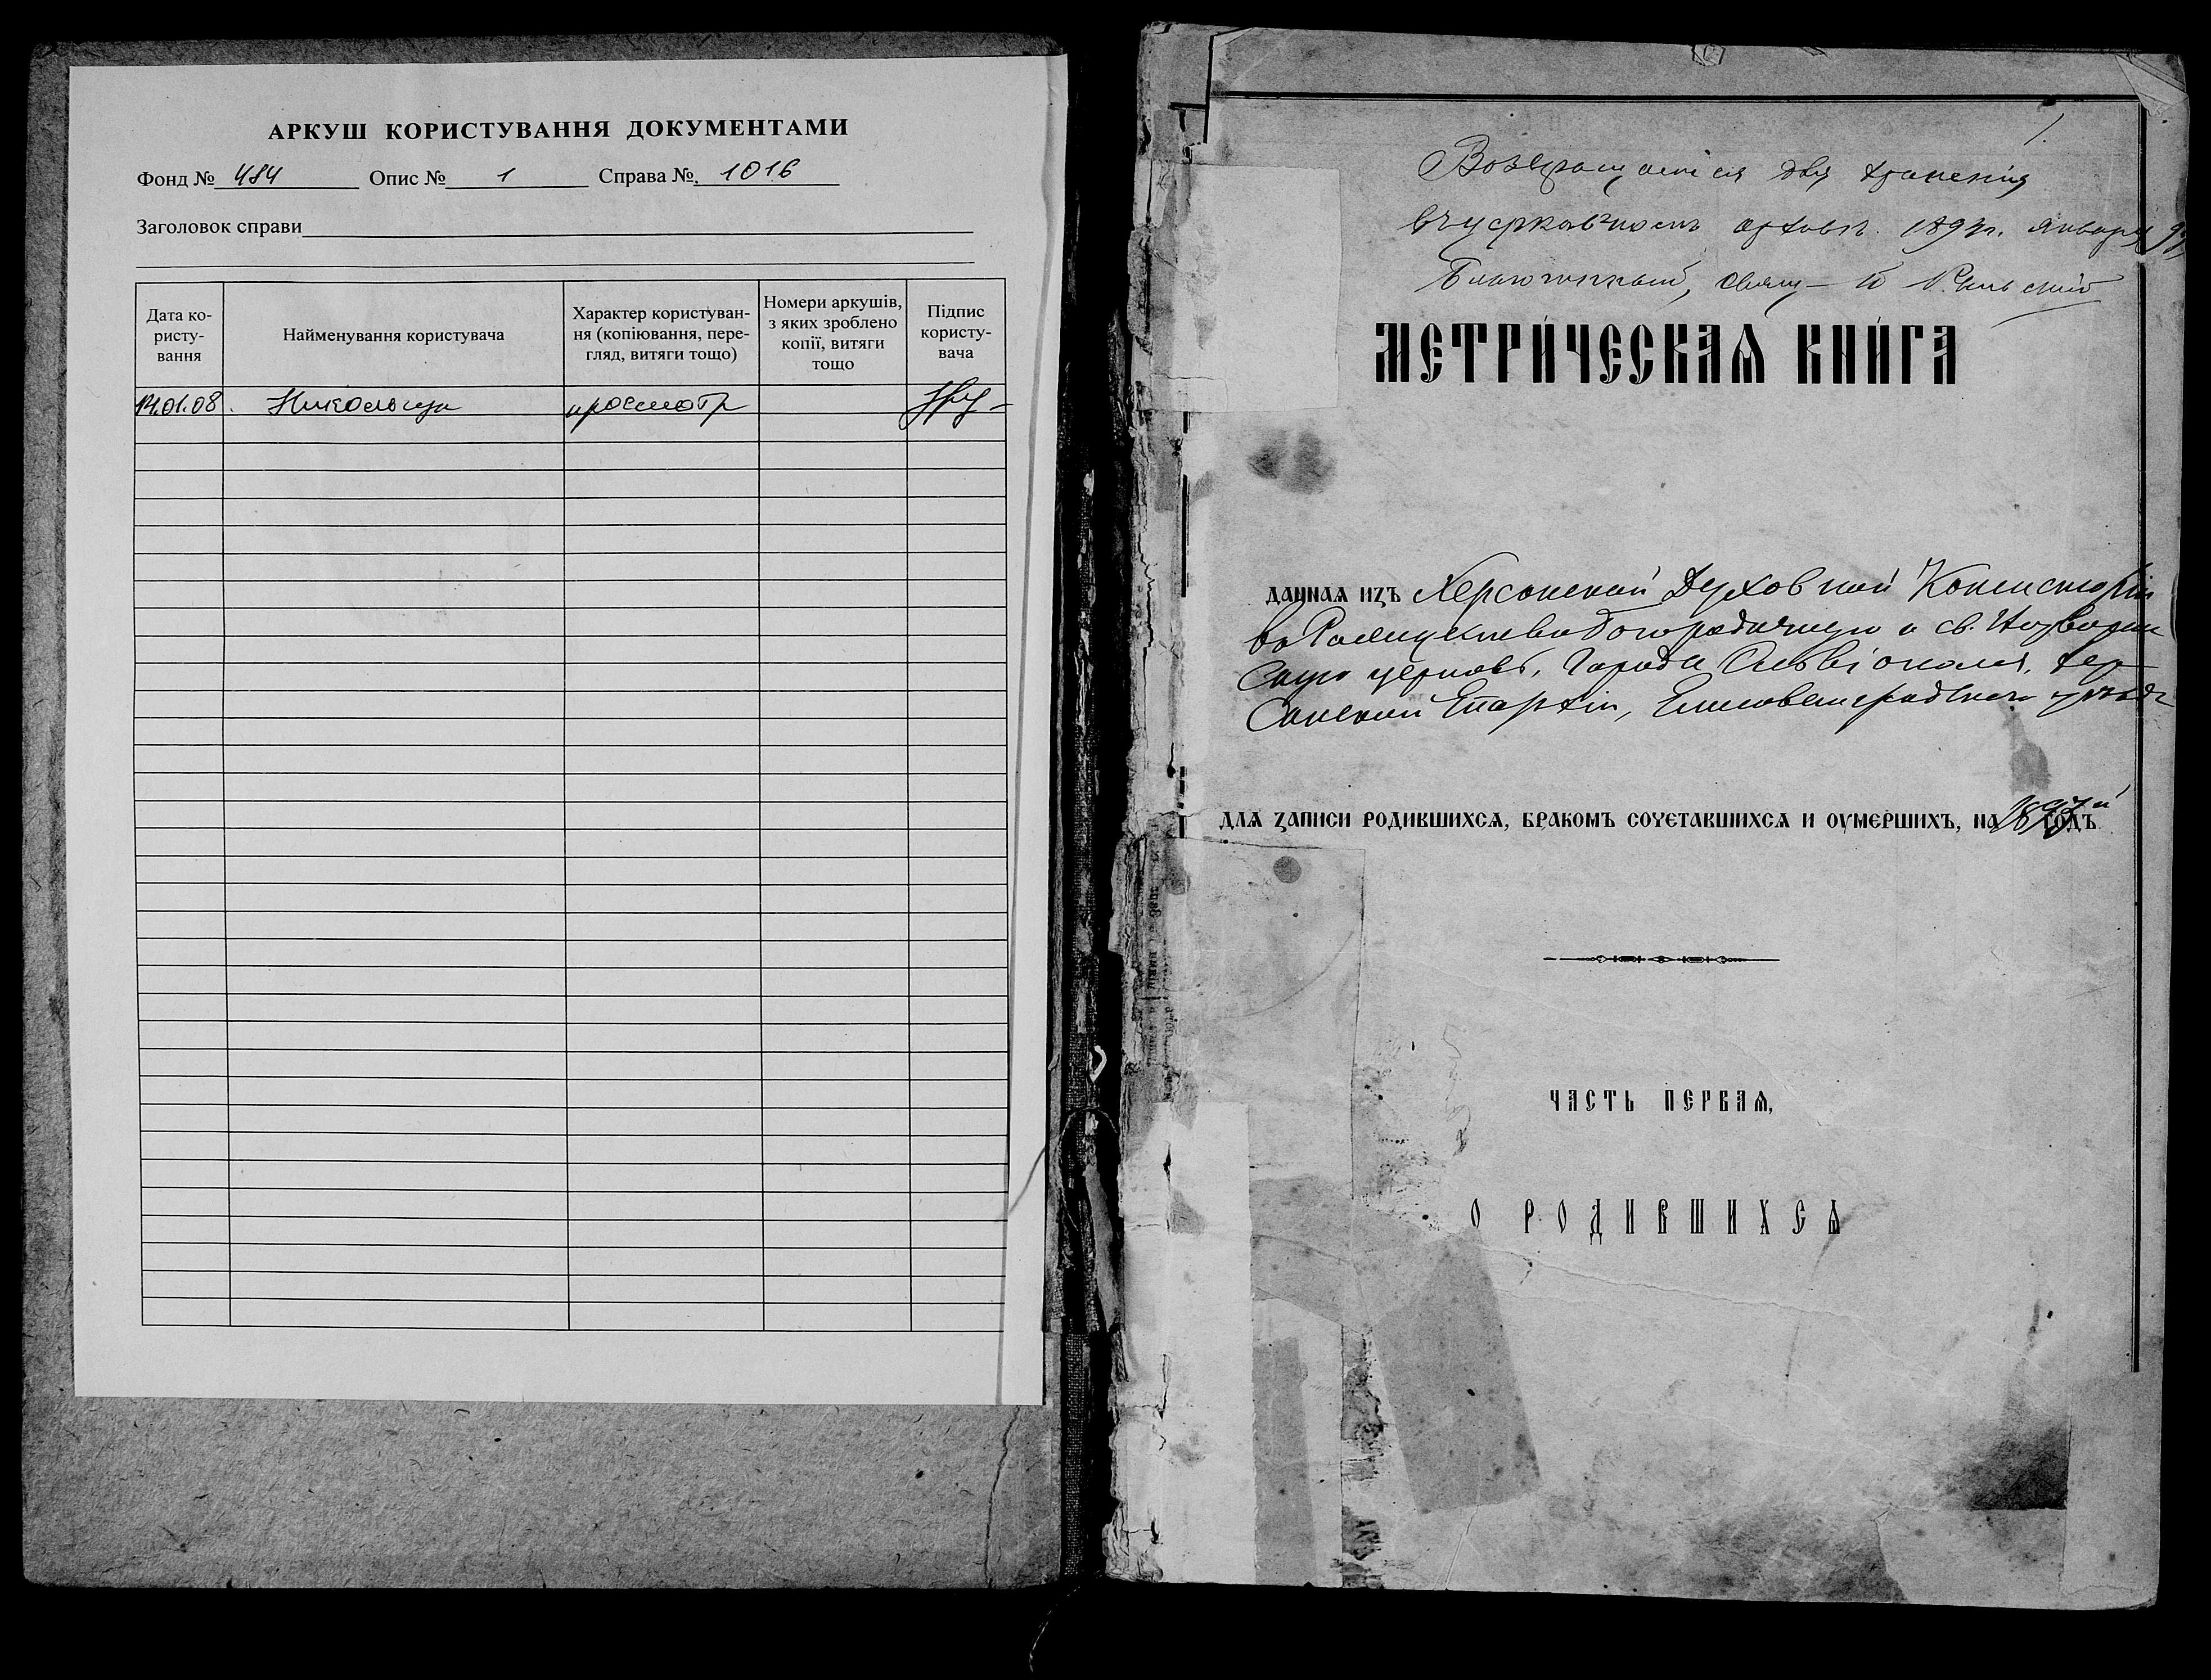 АРКУШ КОРИСТУВАННЯ ДОКУМЕНТАМИ
Фонд № 484 Опис № 1 Справа № 1016
Заголовок справи
Дата ко-
ристу-
вання
Найменування користувача
Характер користуван-
ня (копіювання, пере-
гляд, витяги тощо)
Номери аркушів,
з яких зроблено
копії, витяги
тощо
Підпис
користу-
вача
14.01.08. просмотр
1.
Возвращается для храненія
въ церковномъ архивѣ. января
Благочинный, Свящ-
МЕТРИ́ЧЕСКАѦ КНИ́ГА
ДАННАѦ ИЗЪ Херсонской Духовной Консисторіи
Богородичную и св.
скую церковь, города Ольвіополя, Хер-
сонской Епархіи, Елисаветградскаго уѣзда
ДЛѦ ЗАПИСИ РОДИВШИХСѦ, БРАКОМЪ СОЧЕТАВШИХСѦ И ОУМЕРШИХЪ, НА 1893й ГОДЪ
ЧАСТЬ ПЕРВАѦ,
О РОДИВШИХСѦ